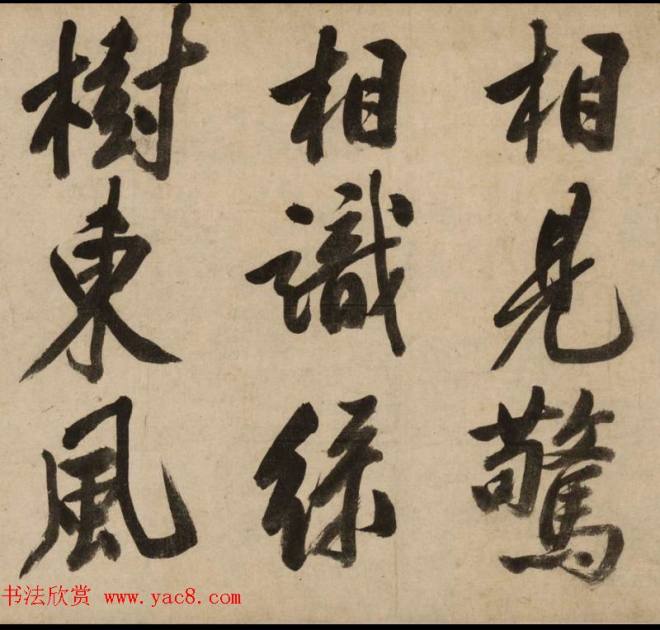 相見驚
相識綠
樹東風
书法欣赏 www.yac8.com